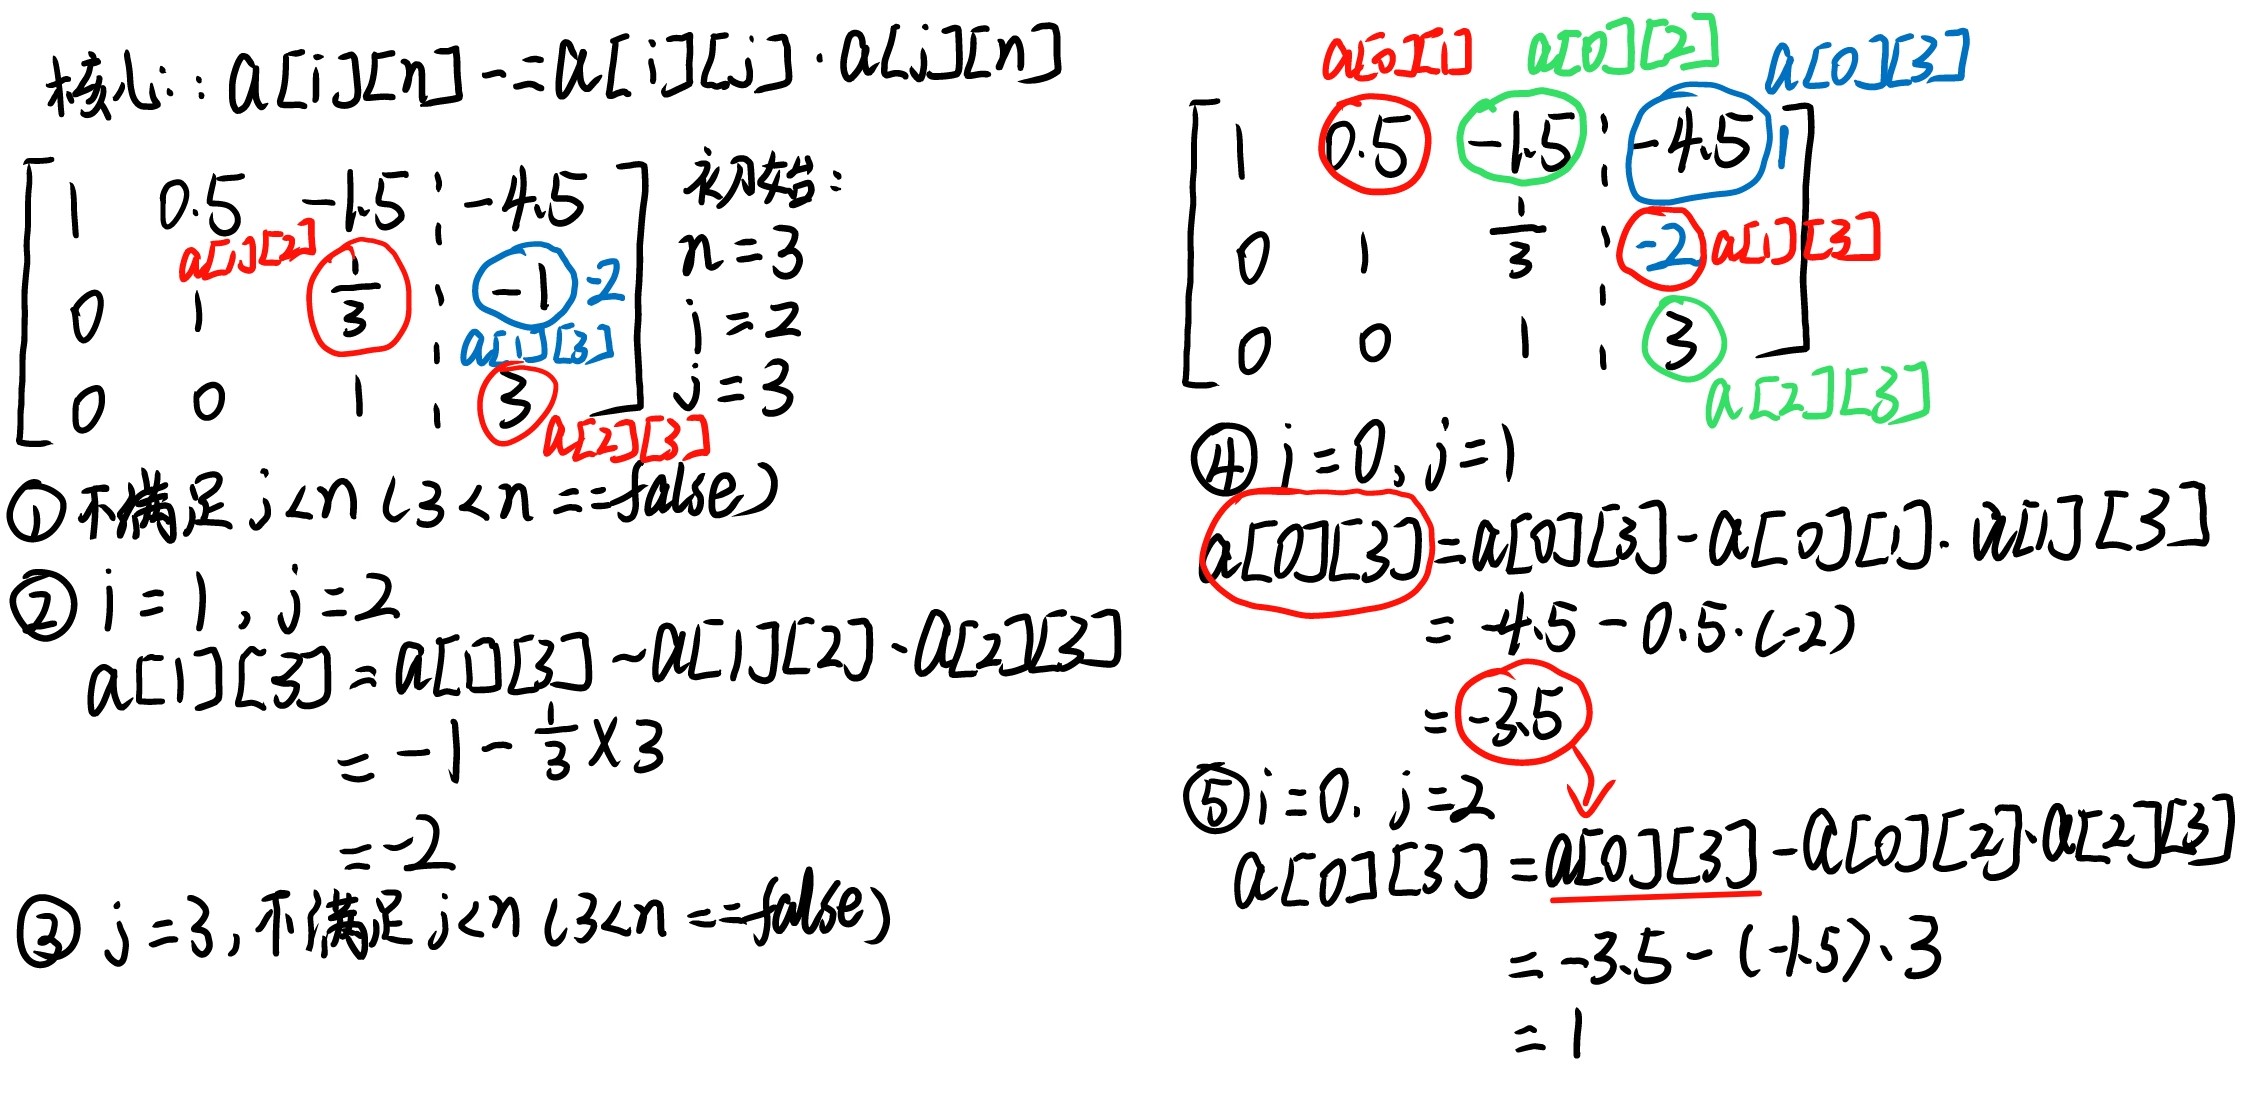 核心: a[i][n] -= a[i][j] · a[j][n]
1 0.5 -1.5 ⋮ -4.5
a[1][2]
0 1 1/3 ⋮ -1 -2
a[1][3]
0 0 1 ⋮ 3
a[2][3]
初始:
n=3
i=2
j=3
① 不满足 j<n (3<n ==false)
② i=1, j=2
a[1][3] = a[1][3] - a[1][2] · a[2][3]
= -1 - 1/3 × 3
= -2
③ j=3, 不满足 j<n (3<n ==false)
a[0][1] a[0][2] a[0][3]
1 0.5 -1.5 ⋮ -4.5 1
0 1 1/3 ⋮ -2 a[1][3]
0 0 1 ⋮ 3
a[2][3]
④ i=0, j=1
a[0][3] = a[0][3] - a[0][1] · a[1][3]
= -4.5 - 0.5·(-2)
= -3.5
⑤ i=0. j=2
a[0][3] = a[0][3] - a[0][2] · a[2][3]
= -3.5 - (-1.5)·3
= 1